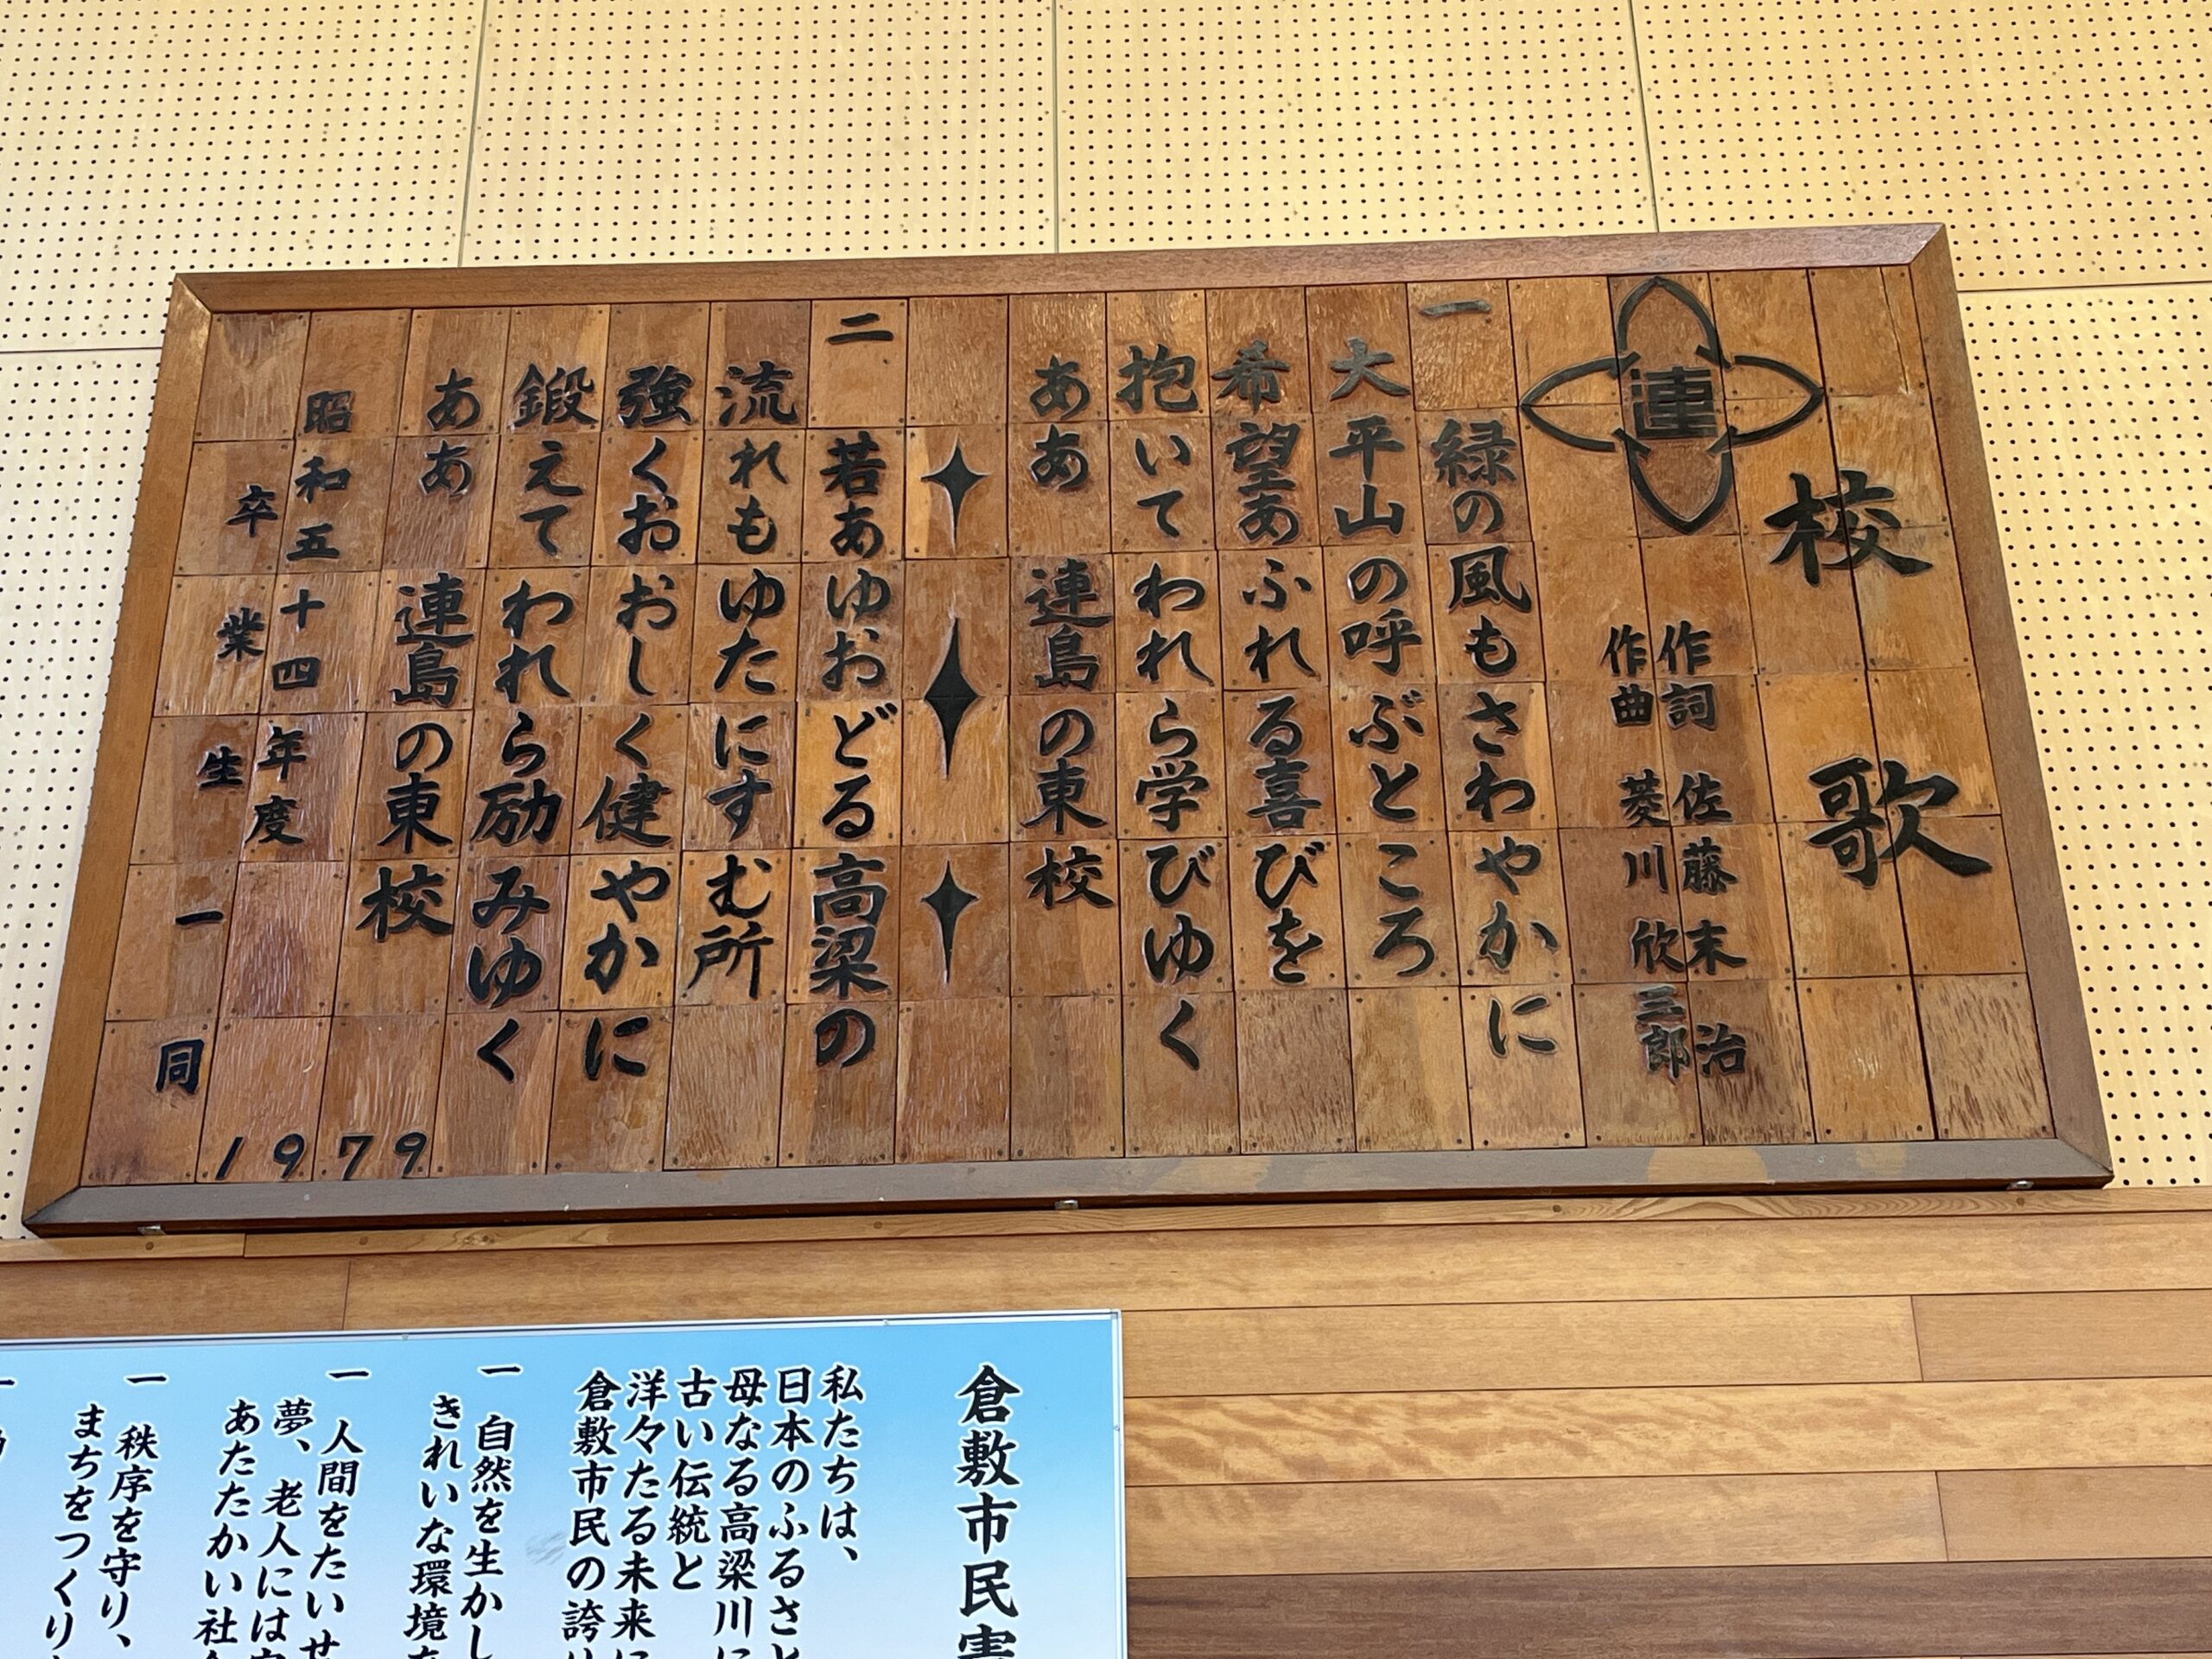 校歌
連
作詞 佐藤末治
作曲 菱川欣三郎
一
緑の風もさわやかに
大平山の呼ぶところ
希望あふれる喜びを
抱いてわれら学びゆく
ああ 連島の東校
二
若あゆおどる高梁の
流れもゆたにすむ所
強くおおしく健やかに
鍛えてわれら励みゆく
ああ 連島の東校
昭和五十四年度
卒業生一同
1979
倉敷市民憲
私たちは、
日本のふるさと
母なる高梁川に
古い伝統と
洋々たる未来に
倉敷市民の誇り
一 自然を生かし
きれいな環境を
一 人間をたいせ
夢、老人には
あたたかい社会
一 秩序を守り、
まちをつくり
一